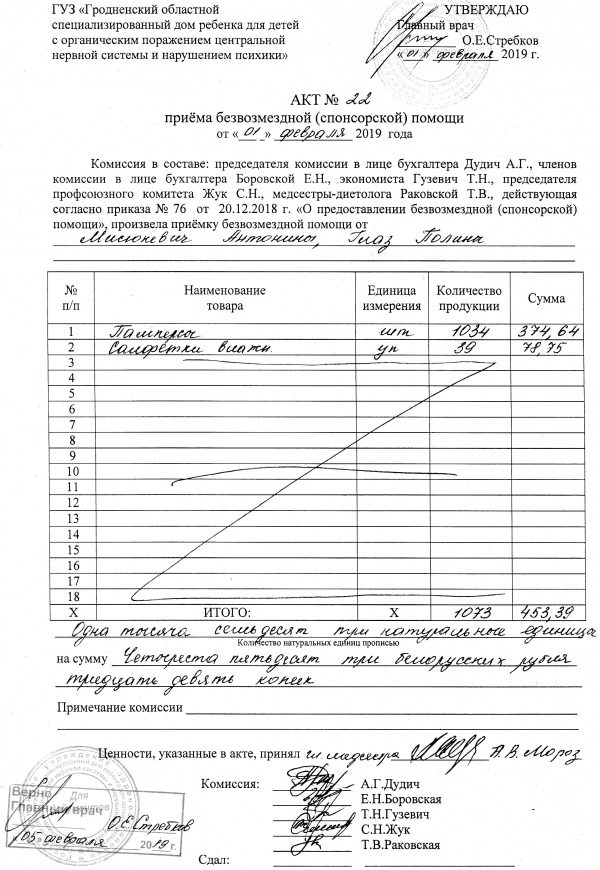 ГУЗ «Гродненский областной
специализированный дом ребенка для детей
с органическим поражением центральной
нервной системы и нарушением психики»
УТВЕРЖДАЮ
Главный врач
О.Е.Стребков
«01» февраля 2019 г.
АКТ № 22
приёма безвозмездной (спонсорской) помощи
от «01» февраля 2019 года
Комиссия в составе: председателя комиссии в лице бухгалтера Дудич А.Г., членов
комиссии в лице бухгалтера Боровской Е.Н., экономиста Гузевич Т.Н., председателя
профсоюзного комитета Жук С.Н., медсестры-диетолога Раковской Т.В., действующая
согласно приказа № 76 от 20.12.2018 г. «О предоставлении безвозмездной (спонсорской)
помощи», произвела приёмку безвозмездной помощи от
Мисюкевич Антонины, Глаз Полина
№ п/п Наименование товара Единица измерения Количество продукции Сумма
1 Памперсы шт 1034 374,64
2 Салфетки влажн. уп 39 78,75
3
4
5
6
7
8
9
10
11
12
13
14
15
16
17
18
Х ИТОГО: Х 1073 453,39
Одна тысяча семьдесят три натуральные единица
Количество натуральных единиц прописью
на сумму Четыреста пятьдесят три белорусских рубля
тридцать девять копеек
Примечание комиссии
Ценности, указанные в акте, принял гл. медсестра А.В. Мороз
Комиссия: А.Г.Дудич
Е.Н.Боровская
Т.Н.Гузевич
С.Н.Жук
Т.В.Раковская
Сдал:
Верно
Главный врач
О.Е.Стребков
«05» февраля 2019 г.